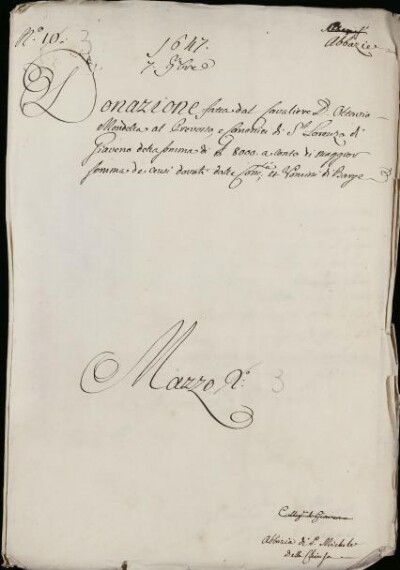 N.º 10. 3
Abbazie
1647.
7 9bre
Donazione fatta dal Cavaliere D. Ottavio
Mondella al Prevosto, e Canonici di S. Lorenzo di
Giaveno della somma di 8000. a conto di maggior
somma de censi dovuti dalle Com.tà, et Uomini di Barge
Mazzo N.º 3
Colleg.ta di Giaveno
Abbazia di S. Michele
della Chiusa